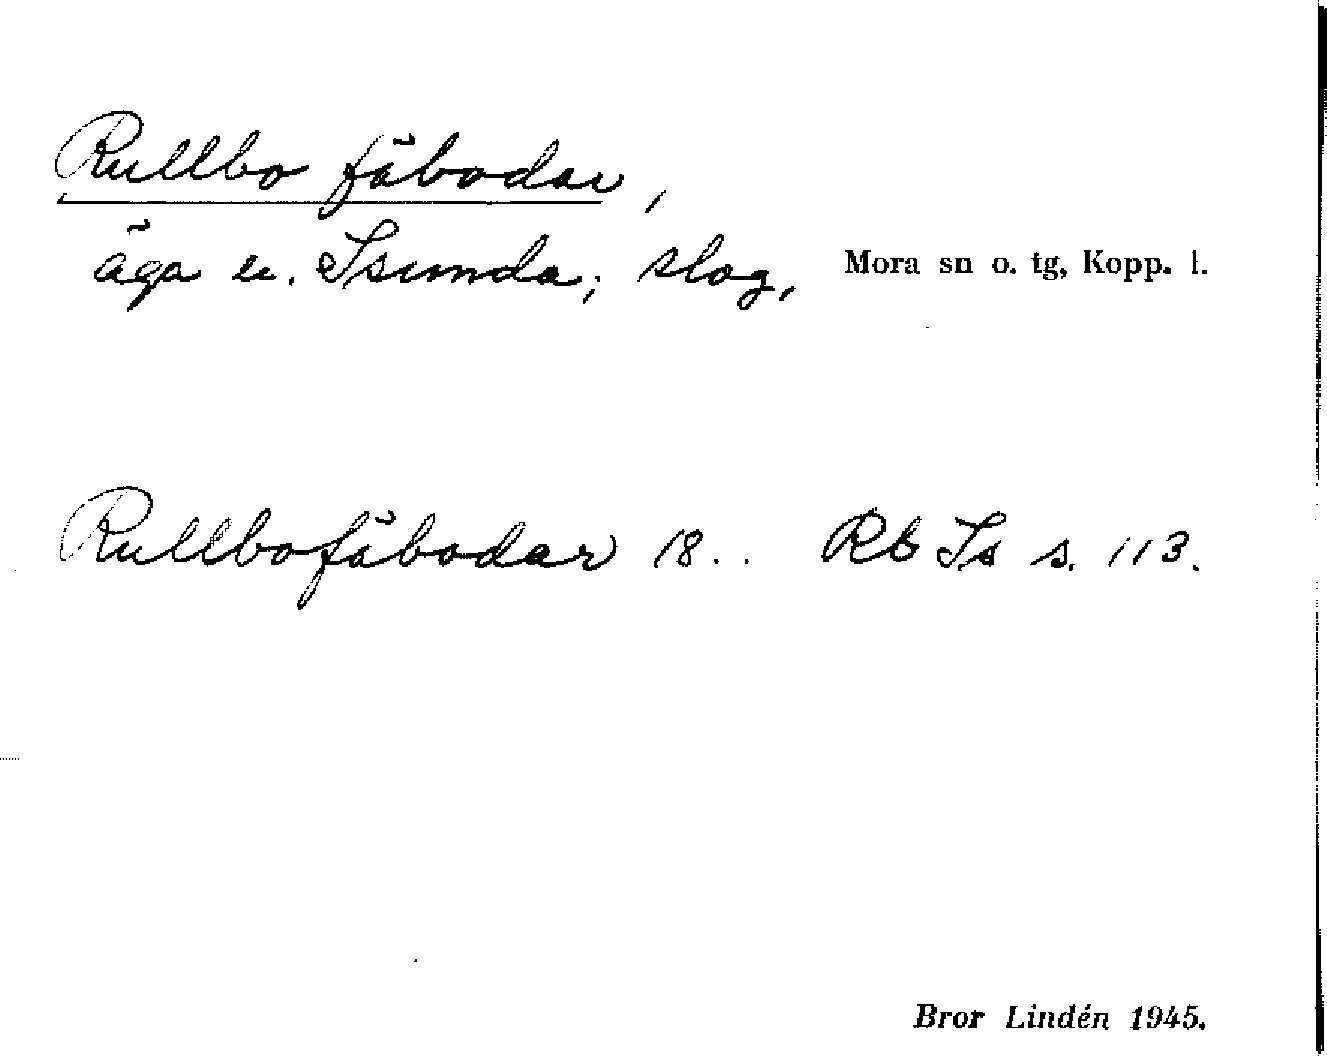 Rullbo fäbodar,
äga u. Isunda; slog, Mora sn o. tg, Kopp. l.
Rullbofäbodar 18.. Rb Is s. 113.
Bror Lindén 1945.